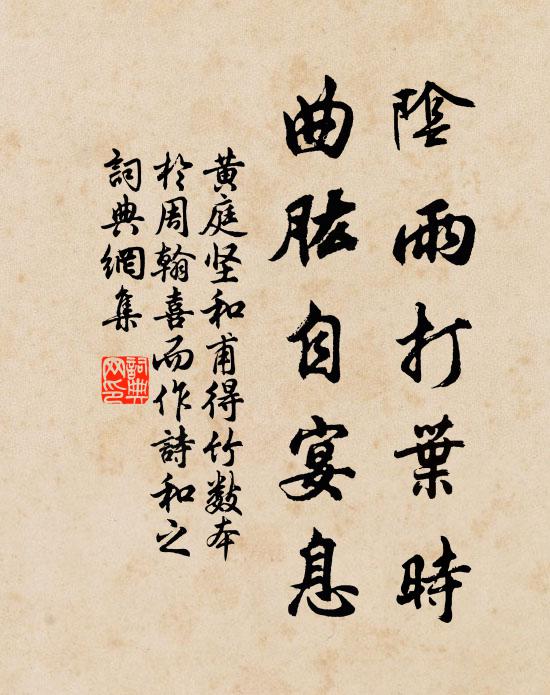 陰雨打葉時
曲肱自宴息
黄庭坚和甫得竹數本
於周翰喜而作詩和之
詞典網集
詞典
网印